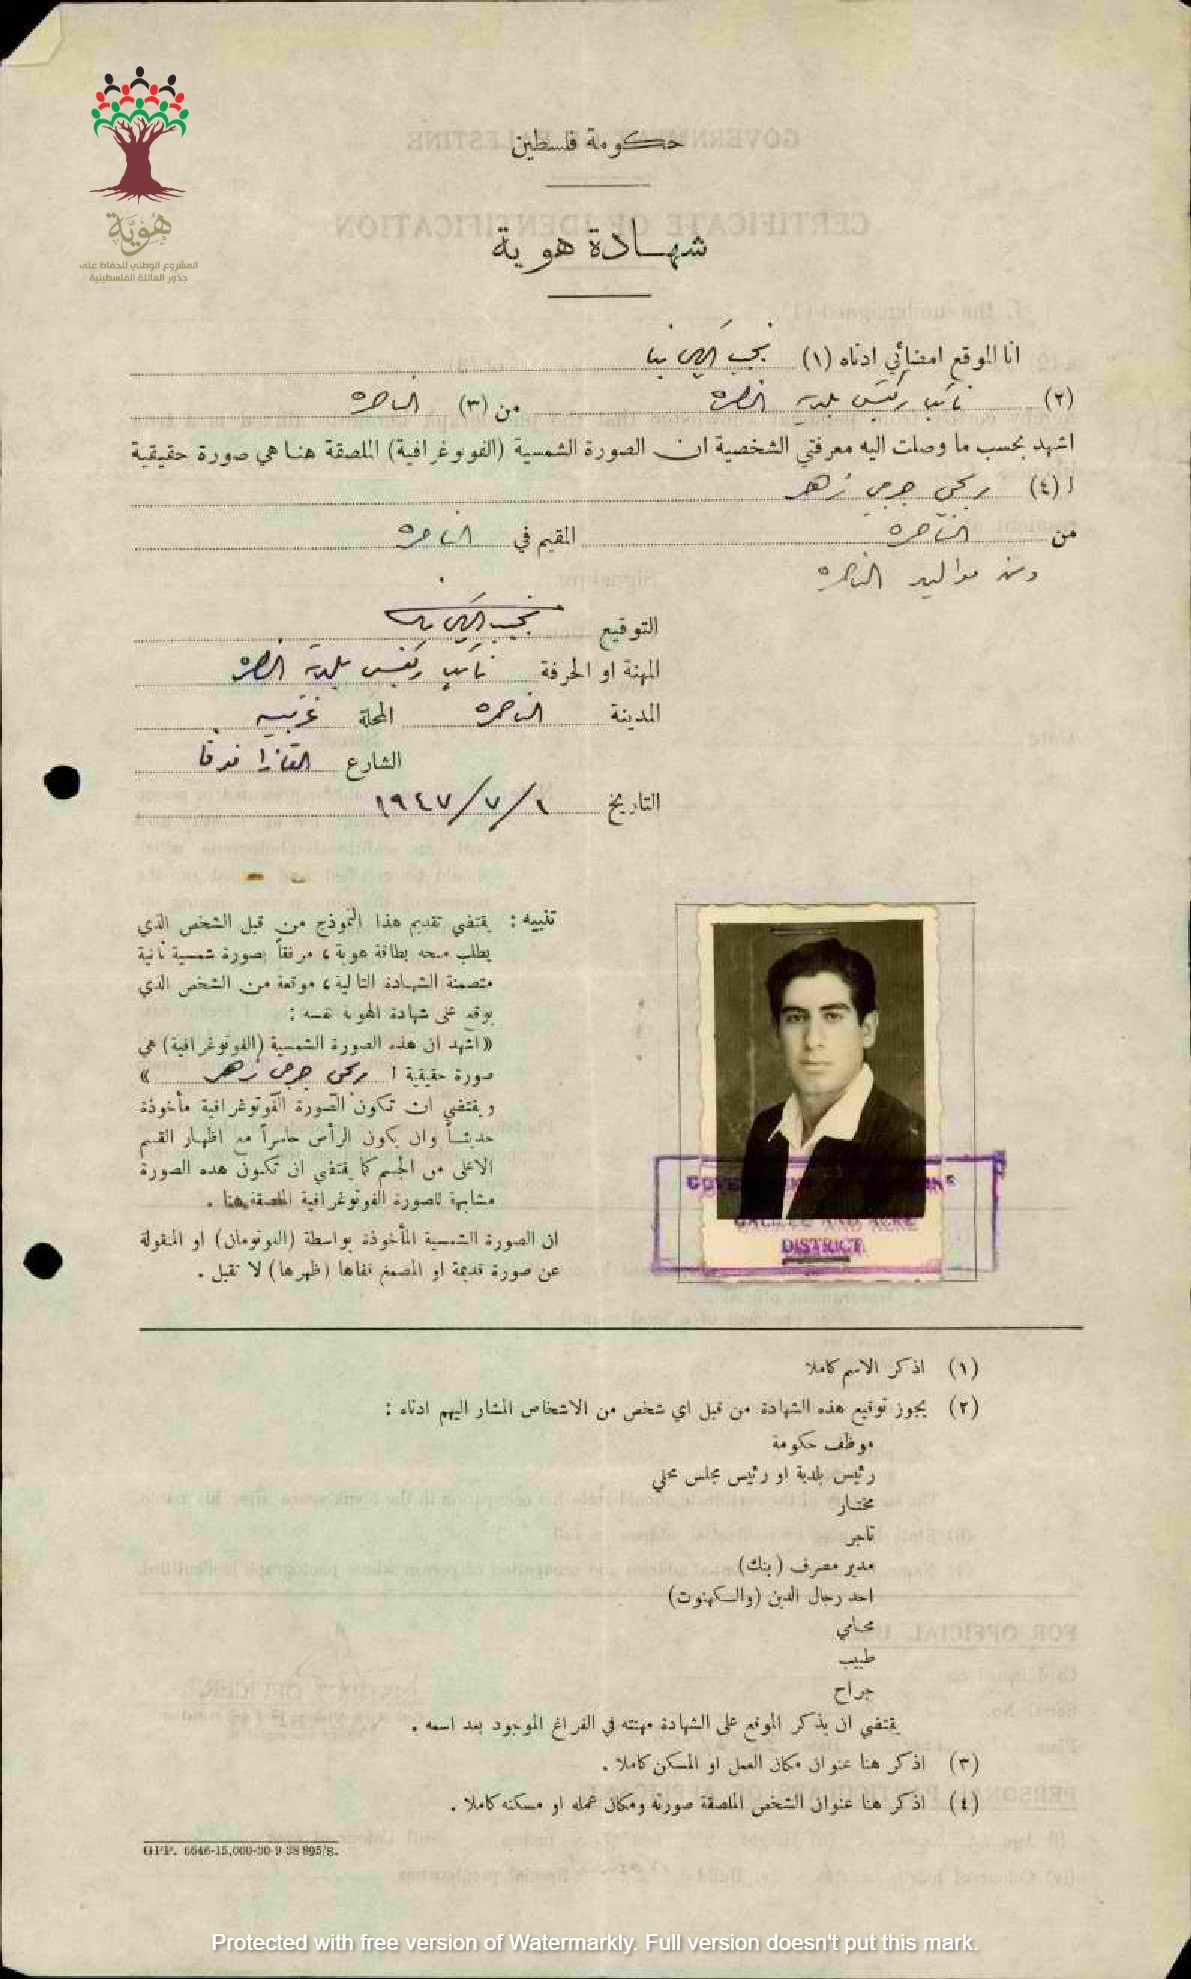 هُوِيَّة
المشروع الوطني للحفاظ على
جذور العائلة الفلسطينية
حكومة فلسطين
شهادة هوية
انا الموقع امضائي ادناه (١) نجيب
(٢) نائب رئيس بلدية الناصرة من (٣) الناصرة
اشهد بحسب ما وصلت اليه معرفتي الشخصية ان الصورة الشمسية (الفوتوغرافية) الملصقة هنا هي صورة حقيقية
ا (٤) جرجي زهر
من الناصرة المقيم في الناصرة
ومن مواليد الناصرة
التوقيع نجيب
المهنة او الحرفة نائب رئيس بلدية الناصرة
المدينة الناصرة المحلة غربية
الشارع
التاريخ ١/٧/١٩٤٧
تنبيه : يقتضي تقديم هذا النموذج من قبل الشخص الذي
يطلب منحه بطاقة هوية ، مرفقاً بصورة شمسية ثانية
متضمنة الشهادة التالية ، موقعة من الشخص الذي
يوقع على شهادة الهوية نفسه :
«اشهد ان هذه الصورة الشمسية (الفوتوغرافية) هي
صورة حقيقية ا جرجي زهر »
ويقتضي ان تكون الصورة الفوتوغرافية مأخوذة
حديثاً وان يكون الرأس حاسراً مع اظهار القسم
الاعلى من الجسم كما يقتضي ان تكون هذه الصورة
مشابهة للصورة الفوتوغرافية الملصقة هنا .
ان الصورة الشمسية المأخوذة بواسطة (الفوتومان) او المنقولة
عن صورة قديمة او المصمغ قفاها (ظهرها) لا تقبل .
GALILEE AND ACRE
DISTRICT
(١) اذكر الاسم كاملا
(٢) يجوز توقيع هذه الشهادة من قبل اي شخص من الاشخاص المشار اليهم ادناه :
موظف حكومة
رئيس بلدية او رئيس مجلس محلي
مختار
تاجر
مدير مصرف (بنك)
احد رجال الدين (والكهنوت)
محامي
طبيب
جراح
يقتضي ان يذكر الموقع على الشهادة مهنته في الفراغ الموجود بعد اسمه .
(٣) اذكر هنا عنوان مكان العمل او المسكن كاملا .
(٤) اذكر هنا عنوان الشخص الملصقة صورته ومكان عمله او مسكنه كاملا .
GPP. 6646-15,000-30-9-38 895/S.
Protected with free version of Watermarkly. Full version doesn't put this mark.